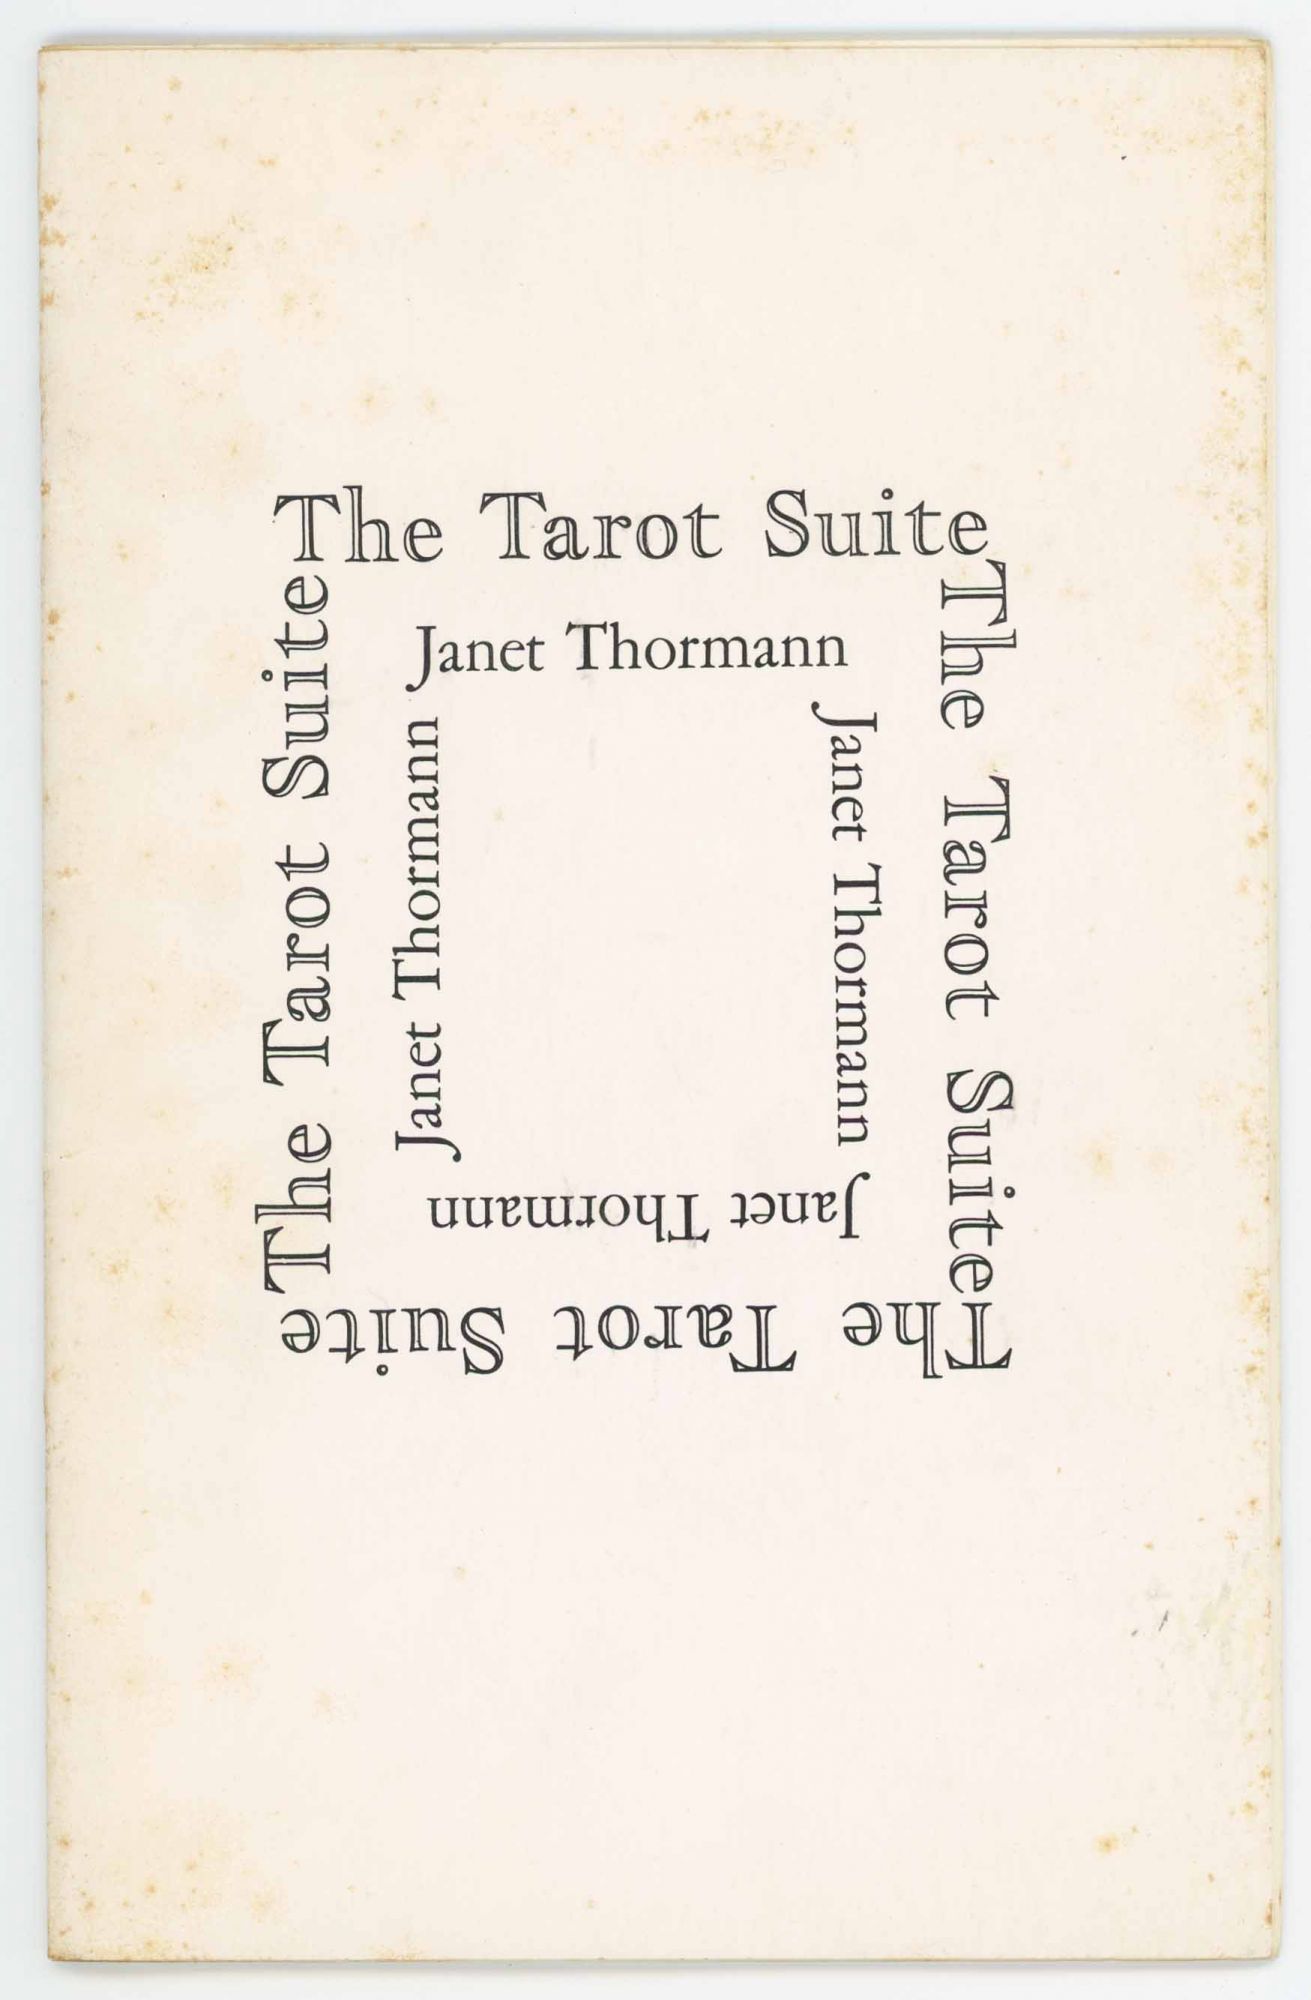 The Tarot Suite
The Tarot Suite
The Tarot Suite
The Tarot Suite
Janet Thormann
Janet Thormann
Janet Thormann
Janet Thormann